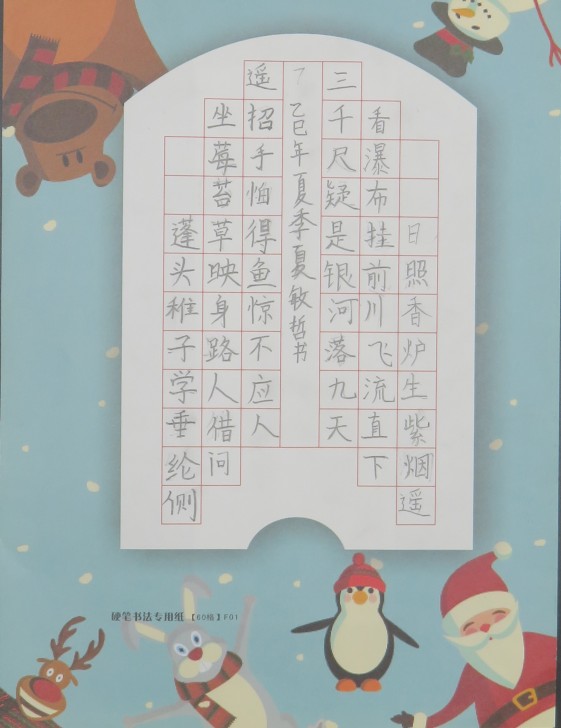 日照香炉生紫烟遥
看瀑布挂前川飞流直下
三千尺疑是银河落九天
乙巳年夏季夏敏哲书
遥招手怕得鱼惊不应人
坐莓苔草映身路人借问
蓬头稚子学垂纶侧
硬笔书法专用纸【60格】F01